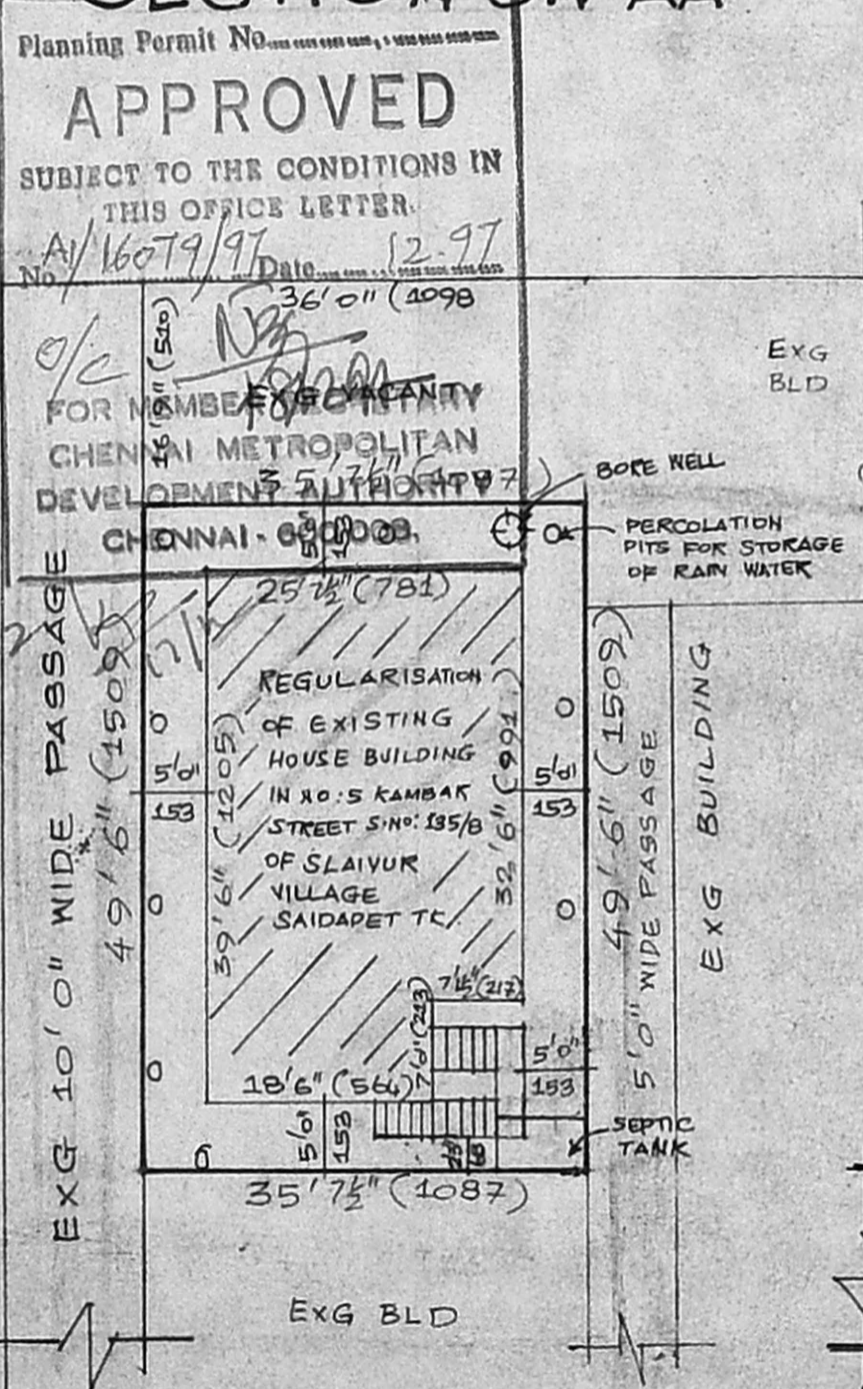 SECTION ON AA
Planning Permit No.
APPROVED
SUBJECT TO THE CONDITIONS IN
THIS OFFICE LETTER.
No. A1/16079/97 Date 12-97
36'0" (1098
16'9" (510)
O/C
EXG VACANTY
FOR MAMBER SECRETARY
CHENNAI METROPOLITAN
DEVELOPMENT AUTHORITY
CHENNAI - 600,008.
35'7½" (1087)
EXG
BLD
BORE WELL
PERCOLATION
PITS FOR STORAGE
OF RAIN WATER
5'0"
153
25'7½" (781)
REGULARISATION
OF EXISTING
HOUSE BUILDING
IN NO:5 KAMBAR
STREET S.NO: 135/8
OF SLAIYUR
VILLAGE
SAIDAPET TK
EXG 10'0" WIDE PASSAGE
49'6" (1509)
5'0"
153
39'6" (1205)
32'6" (991)
5'0"
153
49'-6" (1509)
5'0" WIDE PASSAGE
EXG BUILDING
7'1½" (217)
7'0" (213)
18'6" (564)
5'0"
153
5'0"
153
SEPTIC
TANK
35'7½" (1087)
EXG BLD